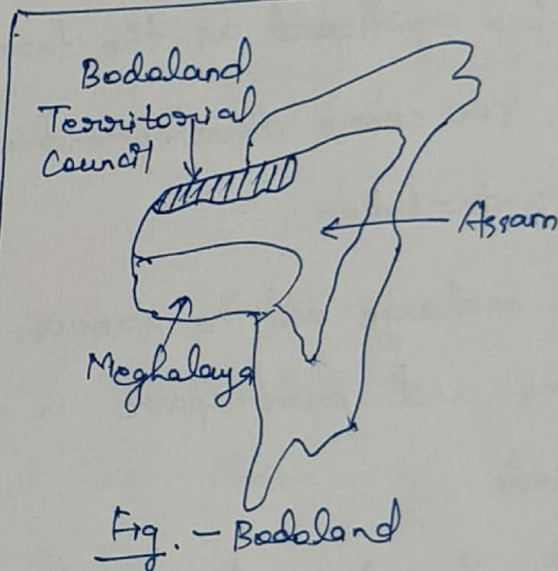 Bodoland
Territorial
Council
Assam
Meghalaya
Fig. - Bodoland